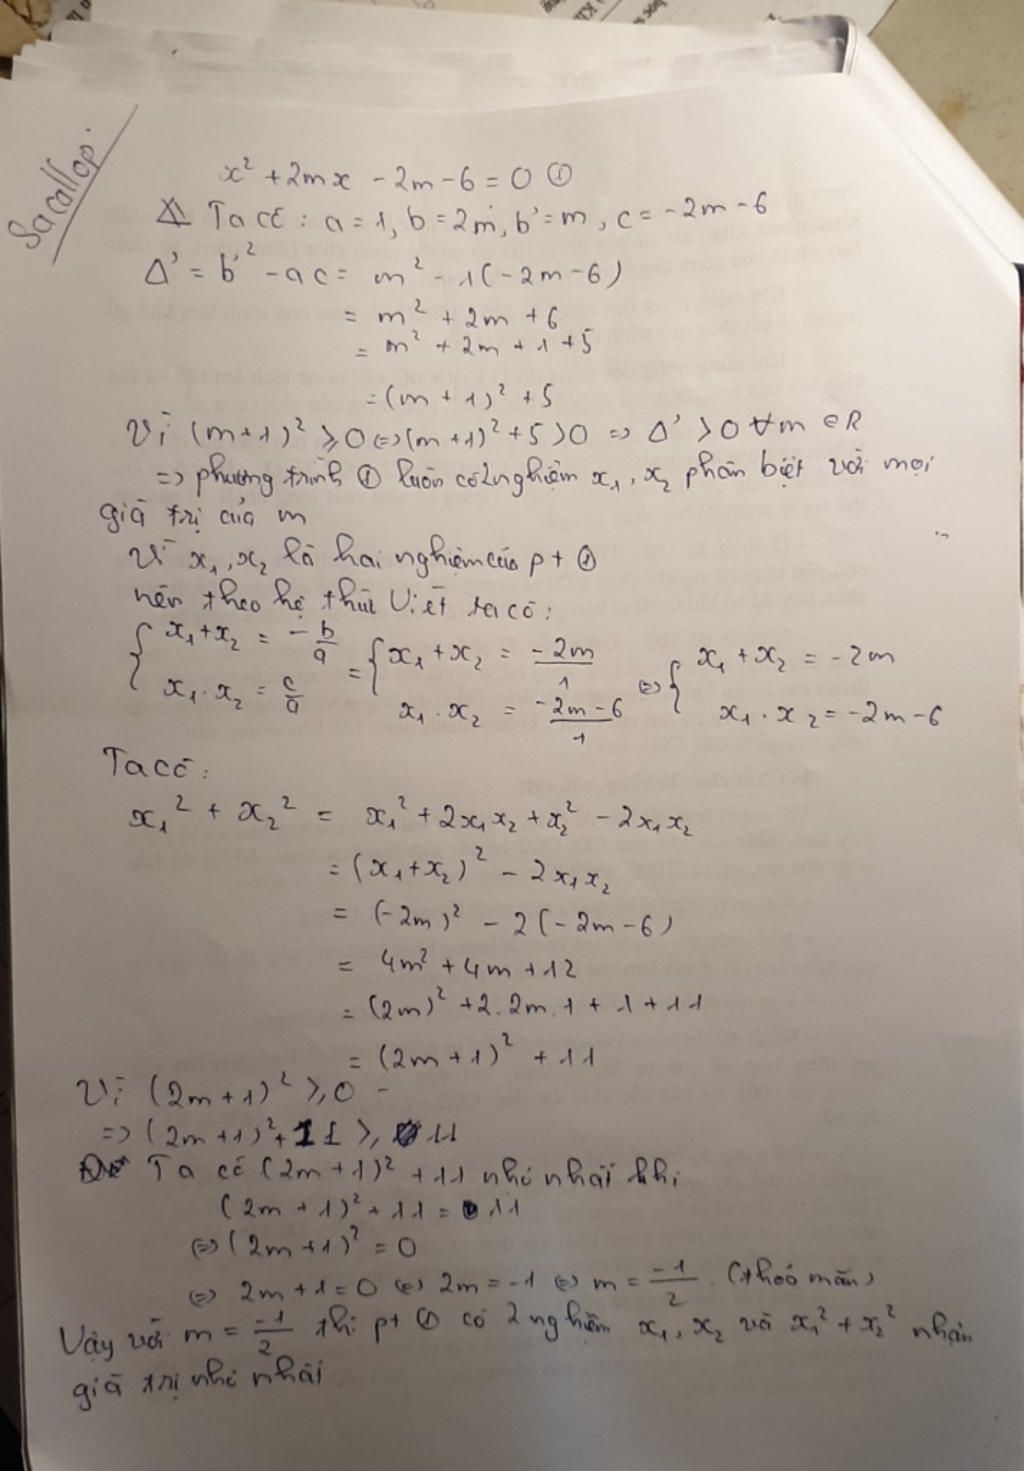 Sacallop.
x² + 2mx - 2m - 6 = 0 ①
Ta có : a = 1, b = 2m, b' = m, c = -2m - 6
Δ' = b'² - ac = m² - 1(-2m - 6)
= m² + 2m + 6
= m² + 2m + 1 + 5
= (m + 1)² + 5
Vì (m+1)² ⩾ 0 ⇔ (m+1)² + 5 > 0 ⇒ Δ' > 0 ∀m ∈ R
⇒ phương trình ① luôn có 2 nghiệm x₁, x₂ phân biệt với mọi
giá trị của m
Vì x₁, x₂ là hai nghiệm của pt ①
nên theo hệ thức Viét ta có :
{ x₁ + x₂ = -b/a = { x₁ + x₂ = -2m/1 ⇔ { x₁ + x₂ = -2m
x₁ . x₂ = c/a x₁ . x₂ = -2m - 6/1 x₁ . x₂ = -2m - 6
Ta có :
x₁² + x₂² = x₁² + 2x₁x₂ + x₂² - 2x₁x₂
= (x₁ + x₂)² - 2x₁x₂
= (-2m)² - 2(-2m - 6)
= 4m² + 4m + 12
= (2m)² + 2.2m.1 + 1 + 11
= (2m + 1)² + 11
Vì (2m + 1)² ⩾ 0
⇒ (2m + 1)² + 11 ⩾ 11
Ta có (2m + 1)² + 11 nhỏ nhất khi
(2m + 1)² + 11 = 11
⇔ (2m + 1)² = 0
⇔ 2m + 1 = 0 ⇔ 2m = -1 ⇔ m = -1/2 . (thoả mãn)
Vậy với m = -1/2 thì pt ① có 2 nghiệm x₁, x₂ và x₁² + x₂² nhận
giá trị nhỏ nhất